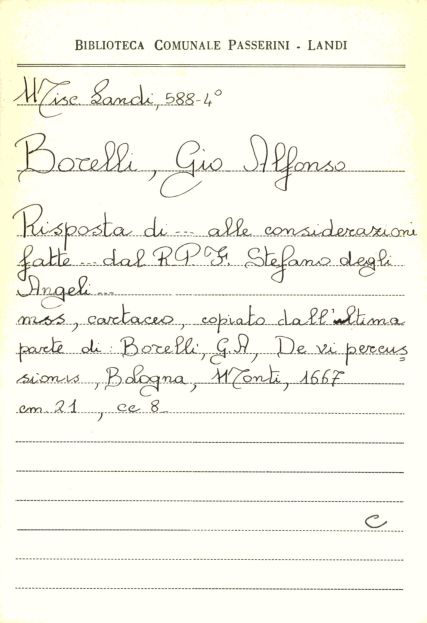 BIBLIOTECA COMUNALE PASSERINI - LANDI
Misc. Landi, 588-4°
Borelli, Gio Alfonso
Risposta di ... alle considerazioni
fatte ... dal R.P.F. Stefano degli
Angeli ...
mss, cartaceo, copiato dall'ultima
parte di: Borelli, G.A, De vi percus=
sionis, Bologna, Monti, 1667
cm 21, cc 8
C